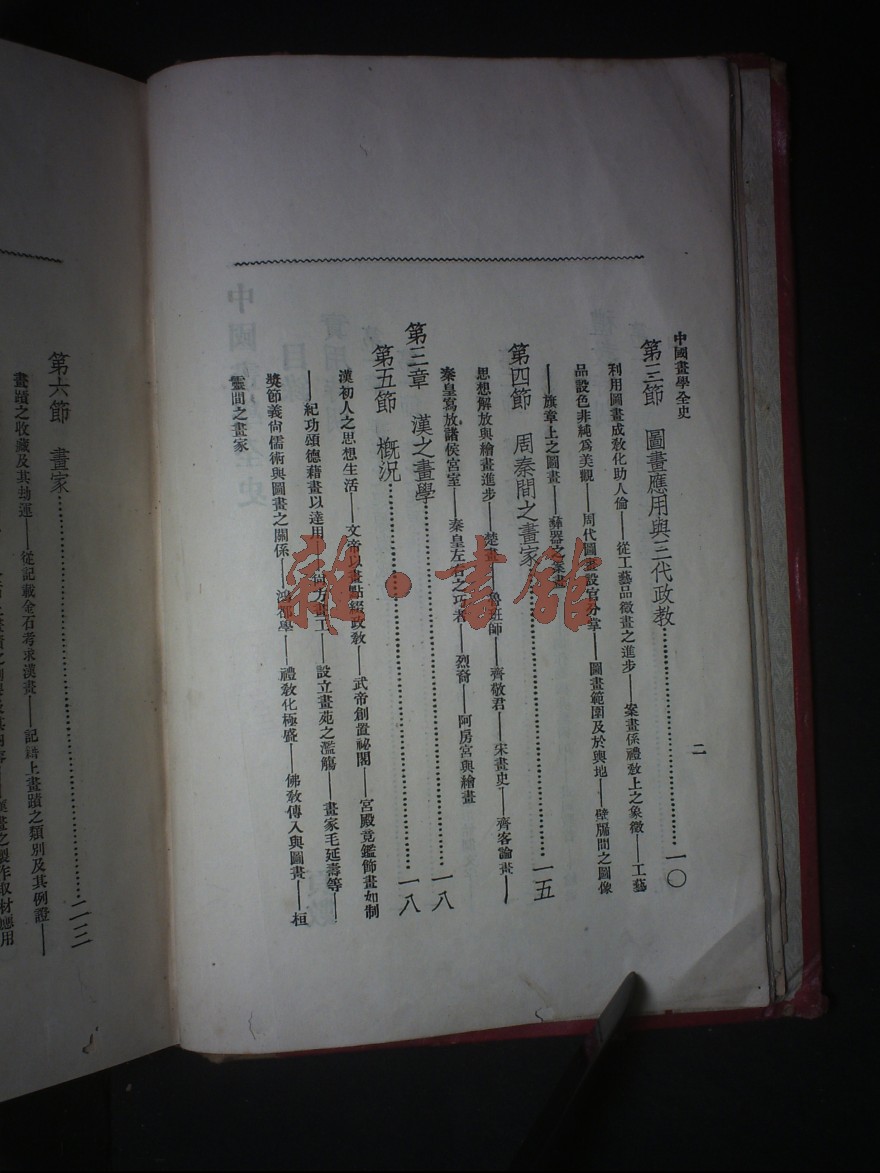 中國畫學全史
二
第三節 圖畫應用與三代政教………一〇
利用圖畫成教化助人倫——從工藝品徵畫之進步——案畫係禮教上之象徵——工藝
品設色非純爲美觀——周代圖畫設官分掌——圖畫範圍及於輿地——壁牖間之圖像
——旗章上之圖畫——彝器之案畫
第四節 周秦間之畫家………一五
思想解放與繪畫進步——楚畫——魯班師——齊敬君——宋畫史——齊客論畫——
秦皇寫放諸侯宮室——秦皇左右之巧者——烈裔——阿房宮與繪畫
第三章 漢之畫學………一八
第五節 概況………一八
漢初人之思想生活——文帝以畫點綴政教——武帝創置祕閣——宮殿竟鑑飾畫如制
——紀功頌德藉畫以達用——尚方畫工——設立畫苑之濫觴——畫家毛延壽等——
獎節義尙儒術與圖畫之關係——鴻都學——禮教化極盛——佛教傳入與圖畫——桓
靈間之畫家
第六節 畫家………二三
畫蹟之收藏及其劫運——從記載金石考求漢畫——記譜上畫蹟之類別及其例證——
漢畫之製作取材應用
雜·書館